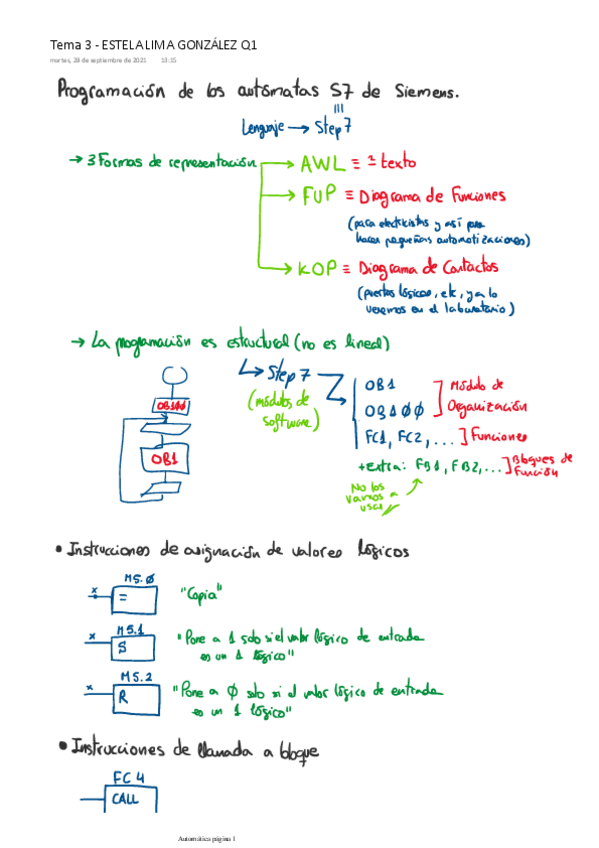 Tema 3 - ESTELA LIMA GONZÁLEZ Q1
martes, 28 de septiembre de 2021 13:15
Programación de los autómatas S7 de Siemens.
Lenguaje → Step 7
→ 3 Formas de representación
AWL ≡ texto
FUP ≡ Diagrama de Funciones
(para electricistas y así para
hacer pequeñas automatizaciones)
KOP ≡ Diagrama de Contactos
(puertas lógicas, etc, ya lo
veremos en el laboratorio)
→ La programación es estructural (no es lineal)
Step 7
(módulos de
software)
OB1
OB100
Módulo de
Organización
FC1, FC2, ... ] Funciones
+extra: FB1, FB2, ... ] Bloques de
Función
No los
vamos a
usar
OB100
OB1
• Instrucciones de asignación de valores lógicos
M5.0
x
=
"Copia"
M5.1
x
S
"Pone a 1 solo si el valor lógico de entrada
es un 1 lógico"
M5.2
x
R
"Pone a 0 solo si el valor lógico de entrada
es un 1 lógico"
• Instrucciones de llamada a bloque
FC4
CALL
Automática página 1